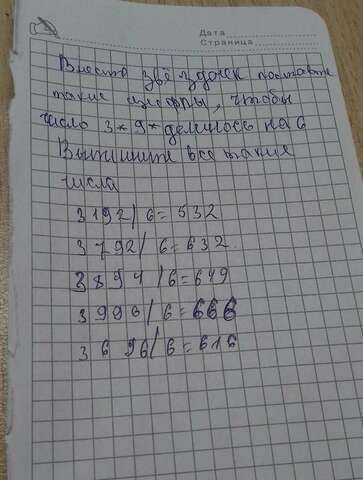 Дата
Страница
Вместо звёздочек поставьте
такие цифры, чтобы
число 3*9* делилось на 6
Выпишите все такие
числа
3192/6=532
3792/6=632
3894/6=649
3996/6=666
3696/6=616